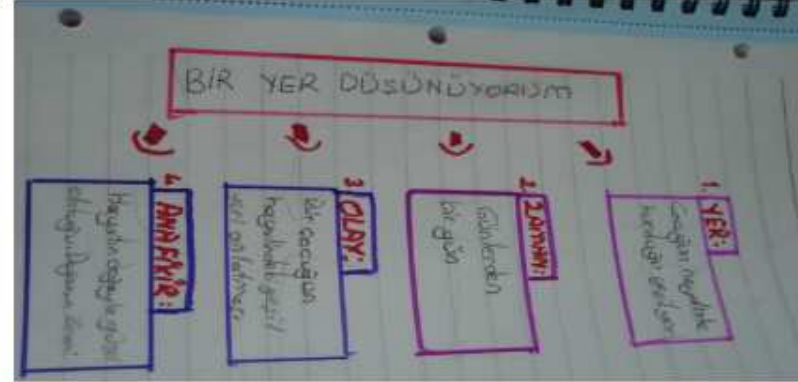 BİR YER DÜŞÜNÜYORUM
1. YER:
Çocuğun hayalinde
kurduğu
2. ZAMAN:
Günlerden
bir gün
3. OLAY:
Bir çocuğun
hayalindeki yeşil
yeri anlatması
4. ANAFİKİR:
Hayatın doğayla güzel
olduğu